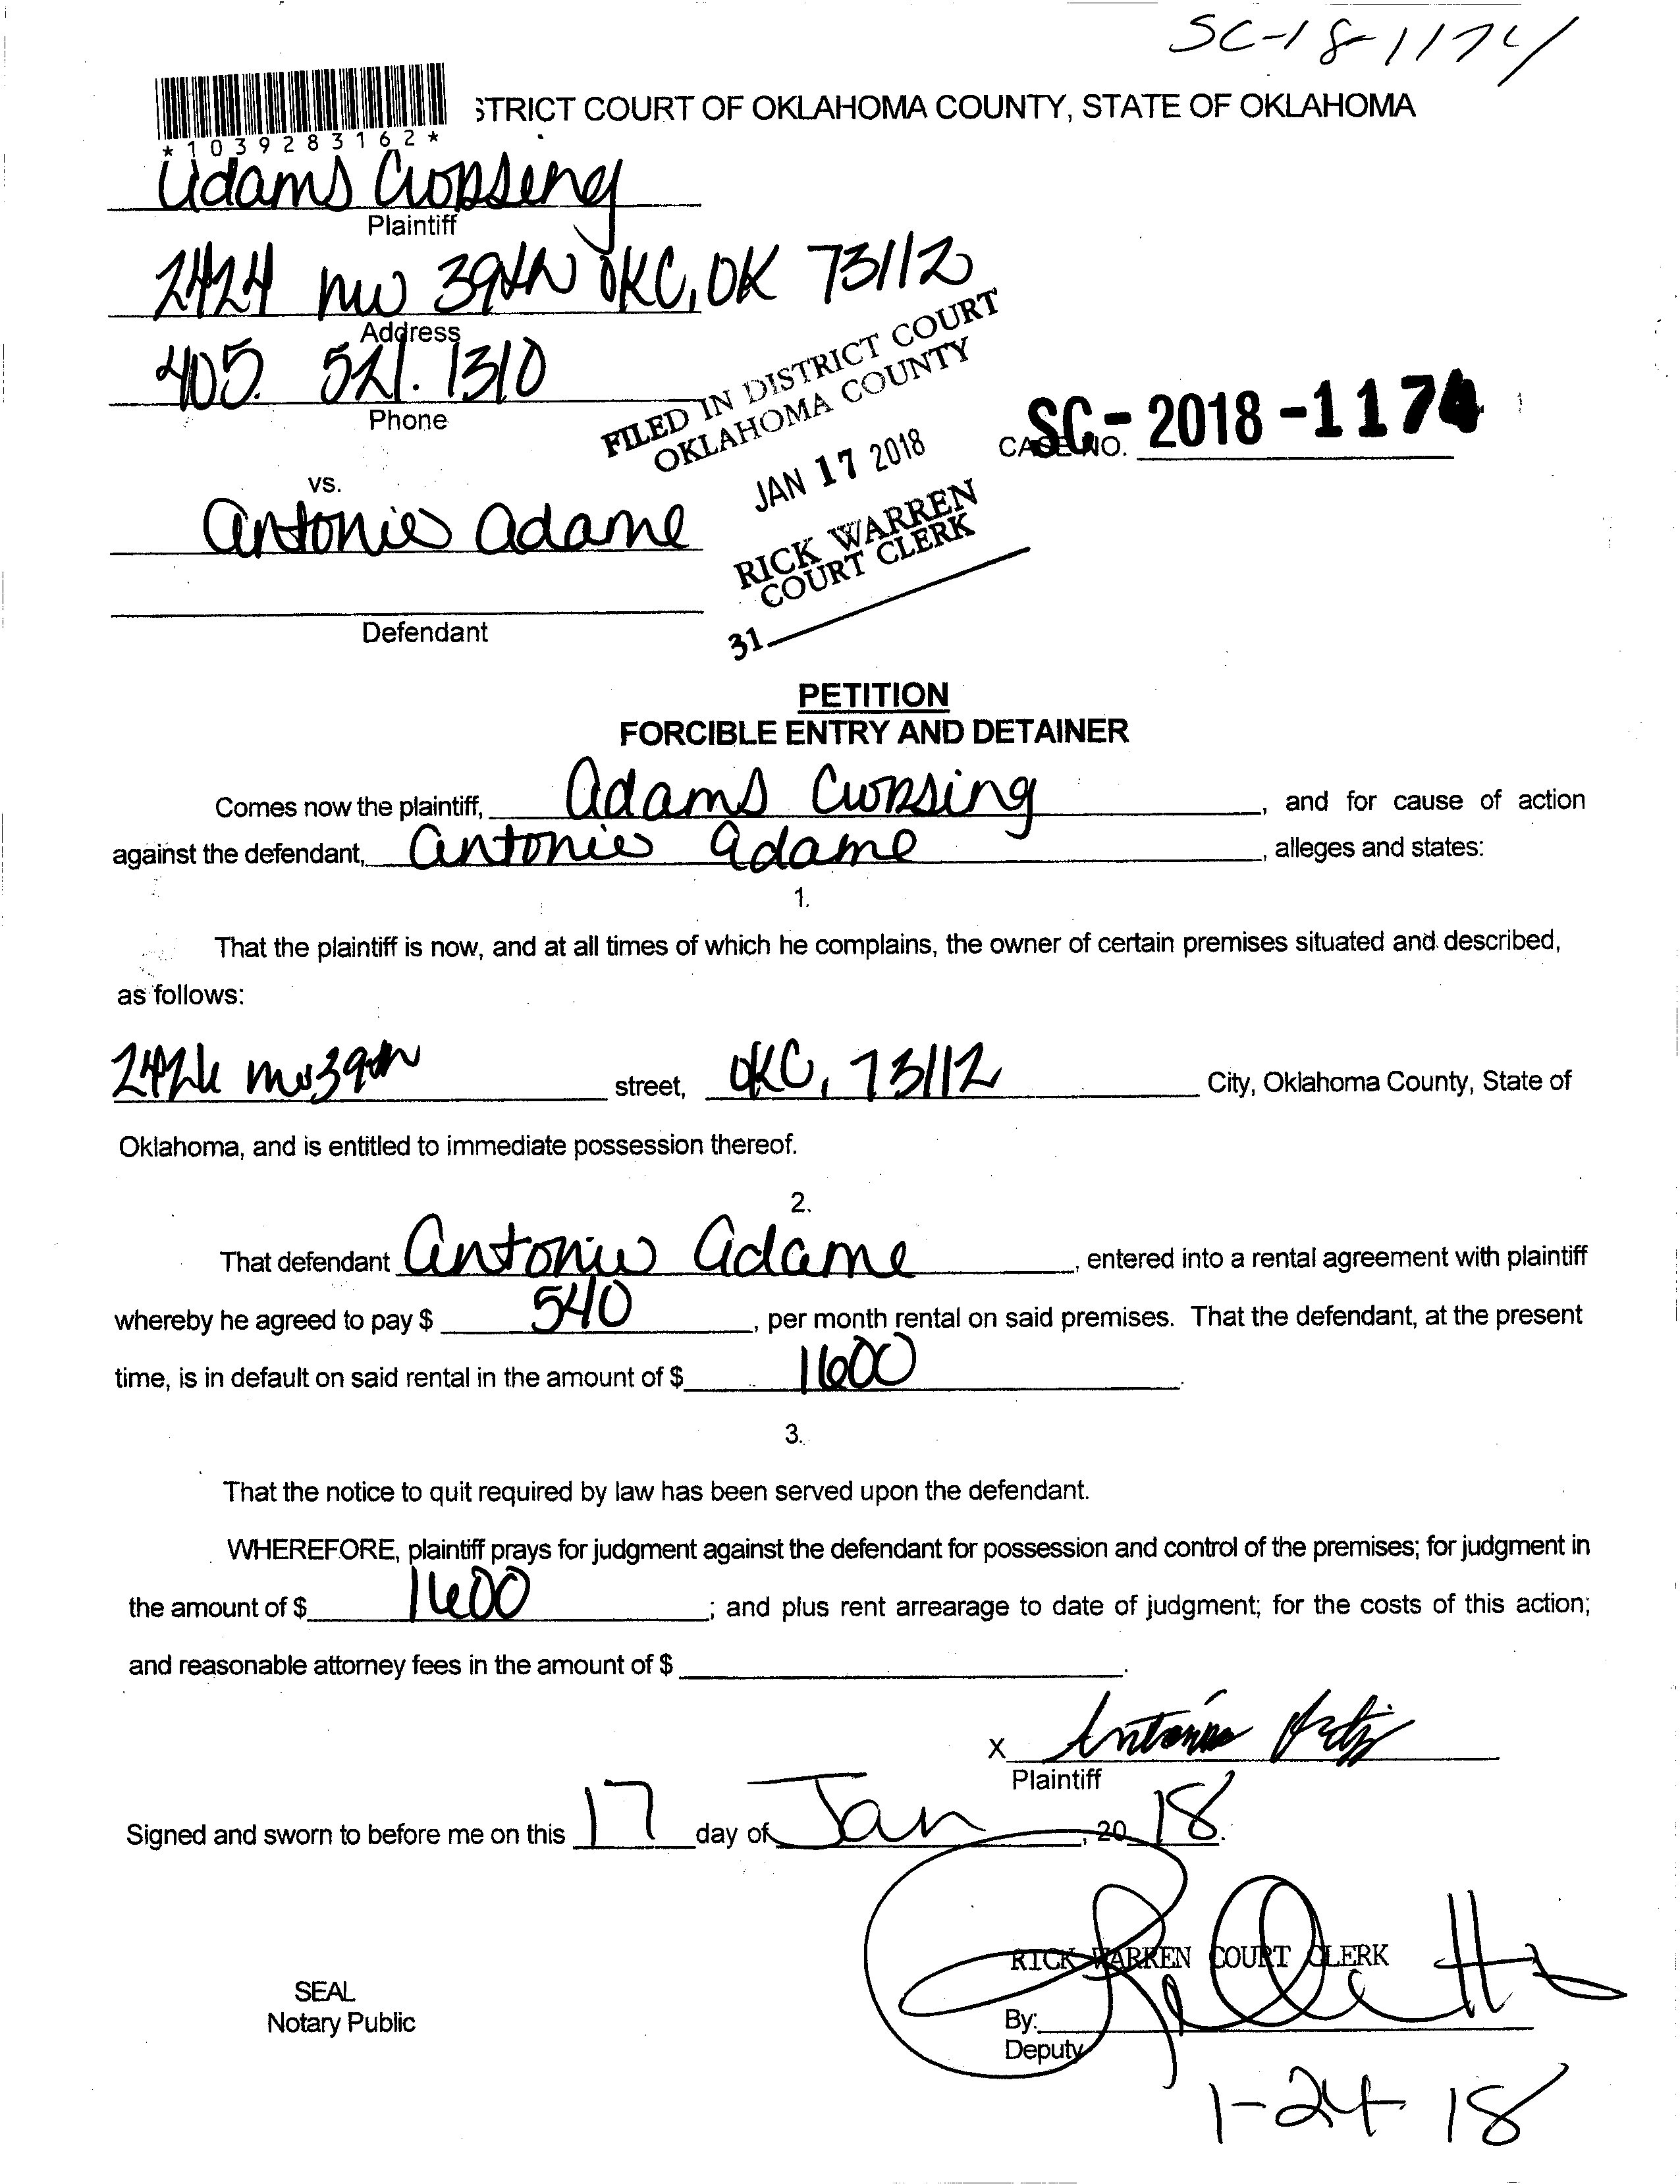 SC-18-1174
STRICT COURT OF OKLAHOMA COUNTY, STATE OF OKLAHOMA
*1039283162*
Adams Crossing
Plaintiff
2424 NW 39th OKC, OK 73112
Address
405. 521. 1310
Phone
FILED IN DISTRICT COURT
OKLAHOMA COUNTY
JAN 17 2018
RICK WARREN
COURT CLERK
31
CASE NO. SC-2018-1174
vs.
Antonio Adame
Defendant
PETITION
FORCIBLE ENTRY AND DETAINER
Comes now the plaintiff, Adams Crossing, and for cause of action
against the defendant, Antonio Adame, alleges and states:
1.
That the plaintiff is now, and at all times of which he complains, the owner of certain premises situated and described,
as follows:
2424 NW 39th street, OKC, 73112 City, Oklahoma County, State of
Oklahoma, and is entitled to immediate possession thereof.
2.
That defendant Antonio Adame, entered into a rental agreement with plaintiff
whereby he agreed to pay $ 540, per month rental on said premises. That the defendant, at the present
time, is in default on said rental in the amount of $ 1600.
3.
That the notice to quit required by law has been served upon the defendant.
WHEREFORE, plaintiff prays for judgment against the defendant for possession and control of the premises; for judgment in
the amount of $ 1600; and plus rent arrearage to date of judgment; for the costs of this action;
and reasonable attorney fees in the amount of $ .
x Antonio
Plaintiff
Signed and sworn to before me on this 17 day of Jan, 20 18.
RICK WARREN COURT CLERK
SEAL
Notary Public
By:
Deputy
1-24-18